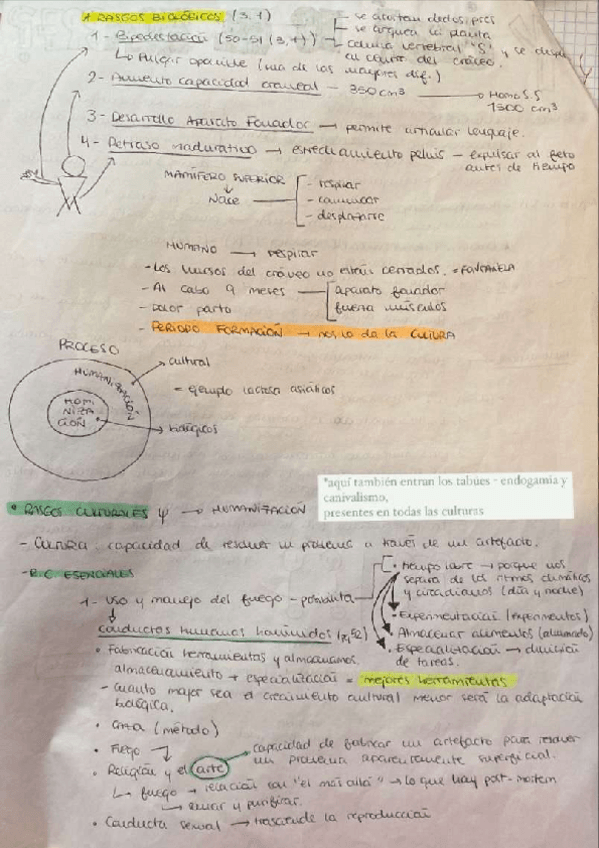 * RASGOS BIOLÓGICOS (3,1)
1 - Bipedestación (50-51 (3,1))
- se acortan dedos pies
- se arquea la planta
- columna vertebral "S" y se despl
al centro del cráneo.
↳ Pulgar oponible (una de las mayores dif.)
2 - Aumento capacidad craneal - 350 cm³ → Homo S.S
1300 cm³
3 - Desarrollo Aparato Fonador → permite articular lenguaje.
4 - Retraso madurativo → estrechamiento pelvis - expulsar al feto
antes de tiempo
MAMÍFERO SUPERIOR
Nace
- respirar
- caminar
- desplazarse
HUMANO → respirar
- Los huesos del cráneo no están cerrados. * FONTANELA
- Al cabo 9 meses
aparato fonador
fuerza músculos
- Dolor parto
- PERIODO FORMACIÓN → nos lo da la CULTURA
PROCESO
HUMANIZACIÓN
HOMI
NIZA
CIÓN
→ cultural
= ejemplo lactosa asiáticos
→ biológicos
*aquí también entran los tabúes - endogamia y
canivalismo,
presentes en todas las culturas
* RASGOS CULTURALES ψ → HUMANIZACIÓN
- CULTURA: capacidad de resolver un problema a través de un artefacto.
- R.C. ESENCIALES
1 - Uso y manejo del fuego - posibilita
• tiempo libre → porque nos
separa de los ritmos climáticos
y circadianos (día y noche)
• Experimentación (experimentos)
• Almacenar alimentos (ahumado)
• Especialización → división
de tareas.
conductas humanas homínidos (51,52)
• Fabricación herramientas y almacenamos.
almacenamiento + especialización = mejores herramientas
- Cuanto mayor sea el crecimiento cultural menor será la adaptación
biológica.
• Caza (método)
• Fuego
• Religión y el arte → capacidad de fabricar un artefacto para resolver
un problema aparentemente superficial.
↳ fuego → relación con "el más allá" → lo que hay post-mortem
↳ y purificar.
• Conducta sexual → trasciende la reproducción